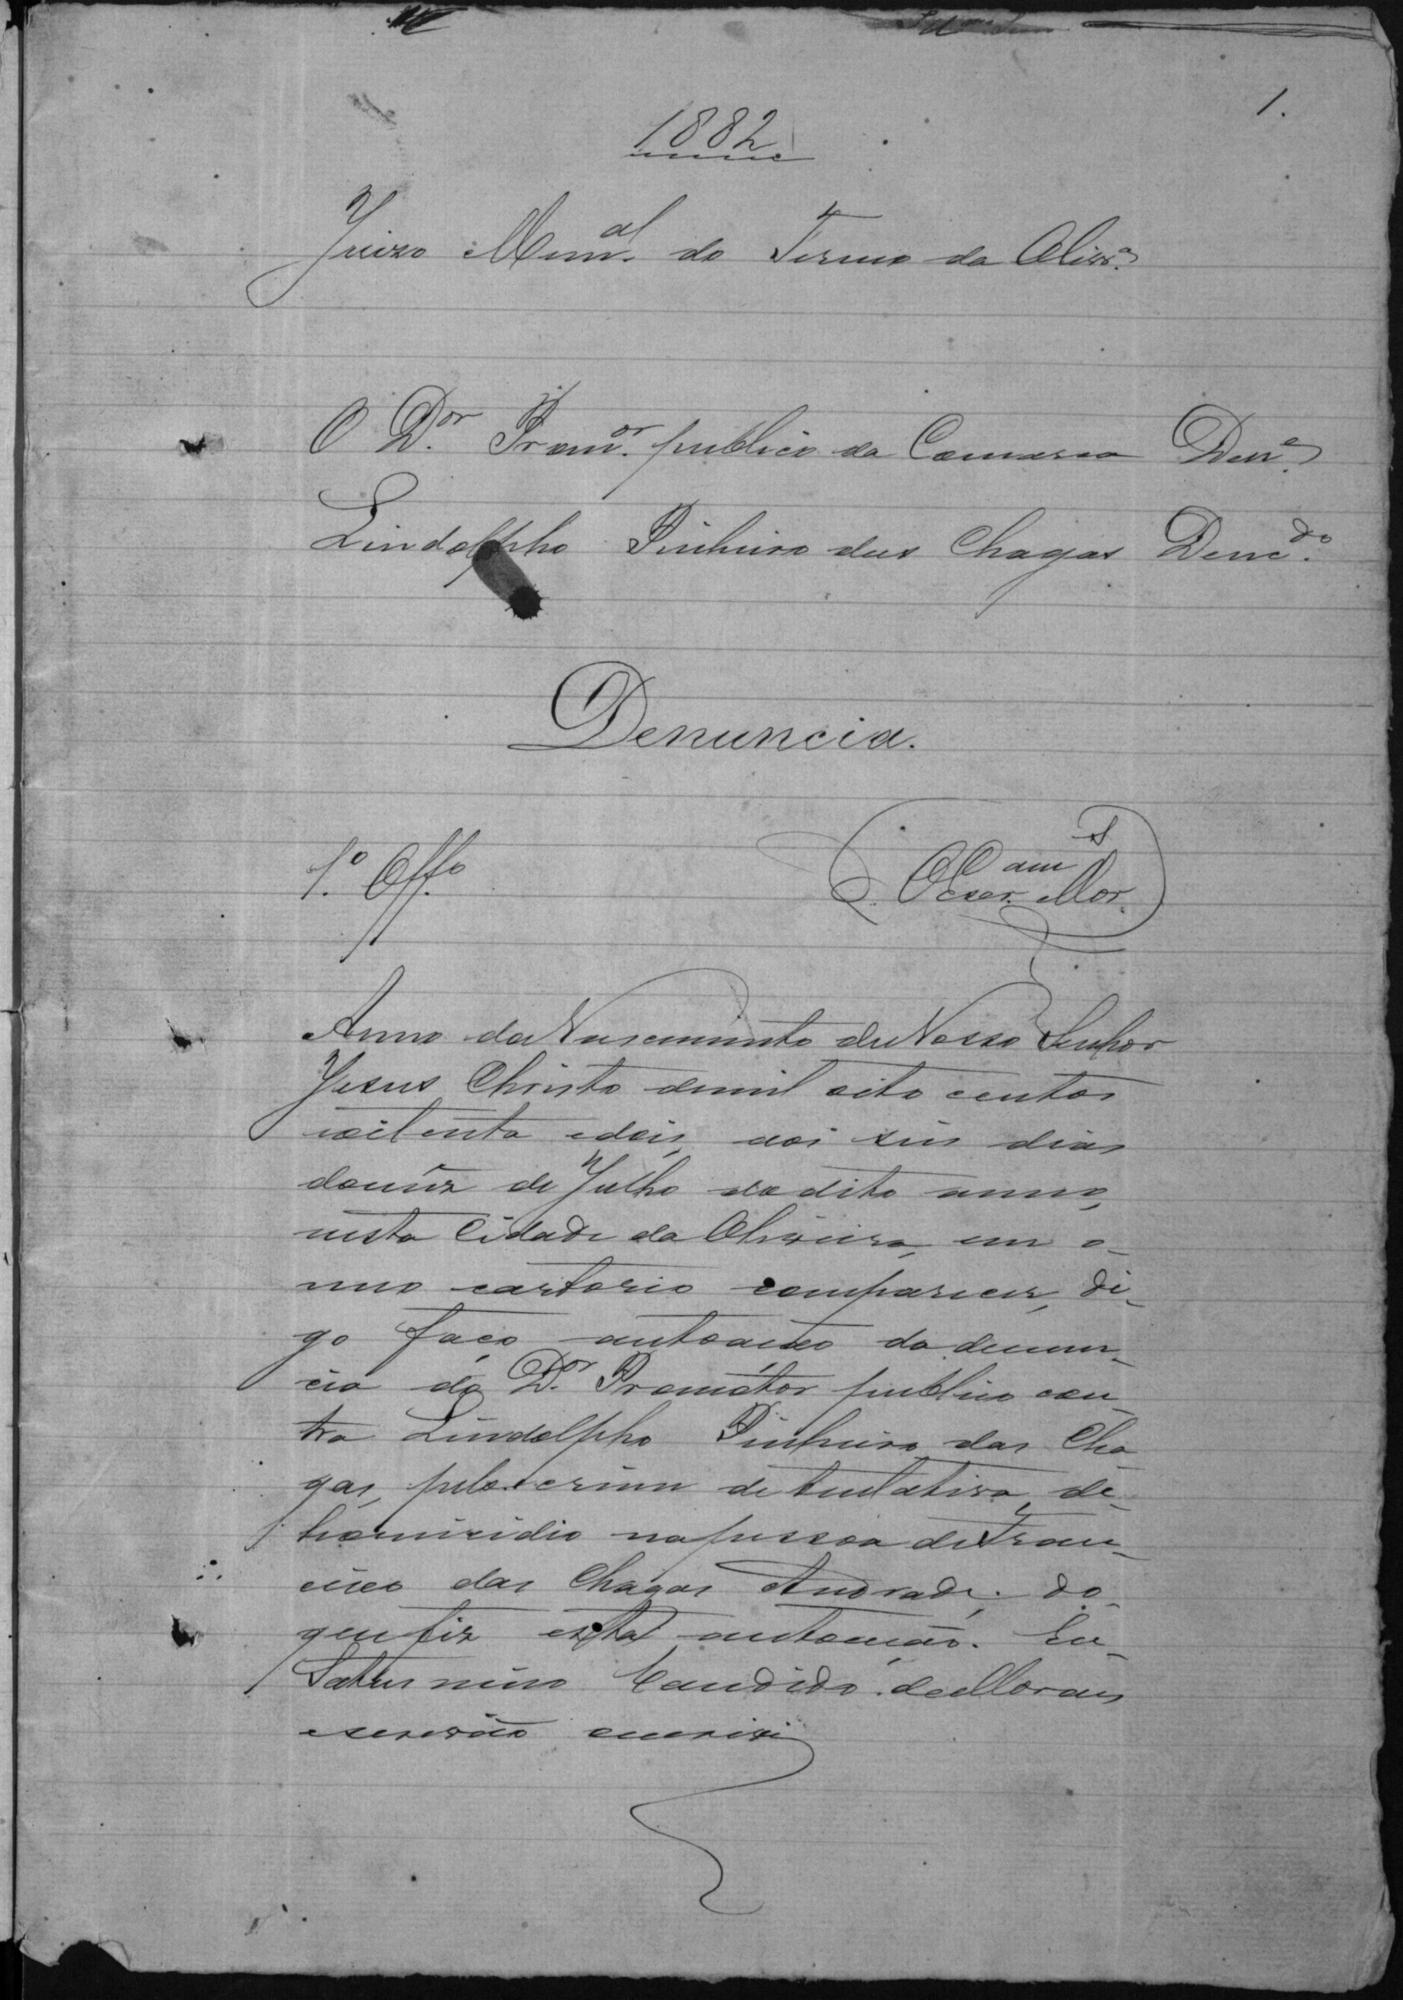 1.
1882.
Juizo Mun.al do Termo da Olivr.a
O D.or Prom.or publico da Comarca Den.e
Lindolpho Pinheiro das Chagas Denc.do
Denuncia.
1.º Off.o
O Escr.am Mor.s
Anno do Nascimento de Nosso Senhor
Jesus Christo de mil oito centos
e oitenta e dois, aos seis dias
do mez de Julho do dito anno,
nesta Cidade da Oliveira, em o
meo cartorio compareceo, di-
go faço autoação da denun-
cia do D.or Promotor publico con-
tra Lindolpho Pinheiro das Cha
gas, pelo crime de tentativa de-
homicidio na pessoa de Fran-
cisco das Chagas Andrade. Do-
que fiz esta autoação. Eu-
Saturnino Candido de Moraes
escrivão escrevi